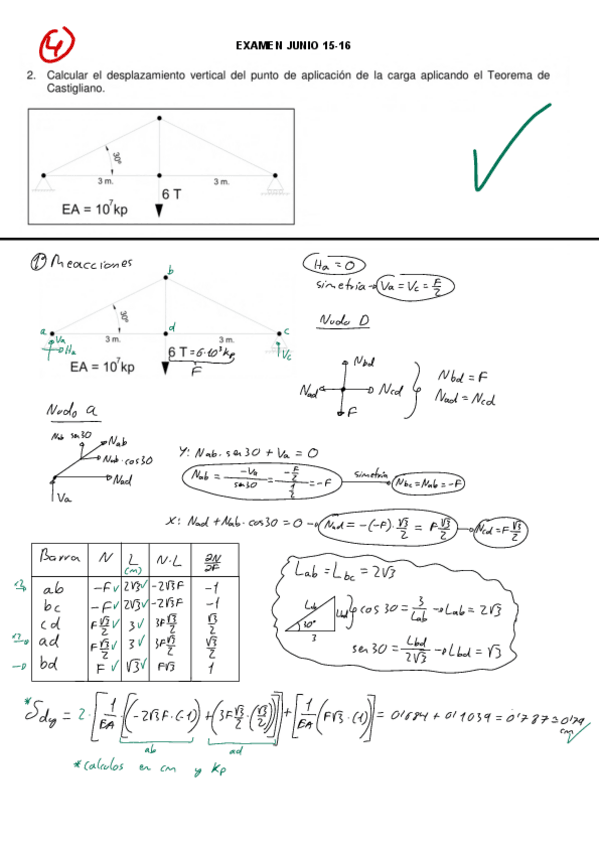 4
EXAMEN JUNIO 15-16
2. Calcular el desplazamiento vertical del punto de aplicación de la carga aplicando el Teorema de
Castigliano.
30º
3 m. 3 m.
6 T
EA = 10⁷kp
1º) Reacciones
Ha = 0
simetría → Va = Vc = F/2
b
30º
a d c
Va Ha 3 m. 3 m. Vc
6 T = 6·10³ kp
F
EA = 10⁷kp
Nudo D
Nbd
Nad Ncd
F
Nbd = F
Nad = Ncd
Nudo a
Nab sen30 Nab
Nab·cos30
Nad
Va
Y: Nab·sen30 + Va = 0
Nab = -Va/sen30 = (-F/2)/(1/2) = -F simetría Nbc = Nab = -F
X: Nad + Nab·cos30 = 0 → Nad = -(-F)·√3/2 = F√3/2 → Ncd = F√3/2
Barra N L (m) N·L ∂N/∂F
ab -F 2√3 -2√3F -1
bc -F 2√3 -2√3F -1
cd F√3/2 3 3F√3/2 √3/2
ad F√3/2 3 3F√3/2 √3/2
bd F √3 F√3 1
Lab = Lbc = 2√3
Lab Lbd 30º 3
cos 30 = 3/Lab → Lab = 2√3
sen 30 = Lbd/2√3 → Lbd = √3
*δdy = 2·[1/EA·[(-2√3F·(-1)) + (3F√3/2·(√3/2))]] + [1/EA(F√3·(1))] = 0'684 + 0'1039 = 0'787 = 0'79 cm
ab ad
*calculos en cm y Kp